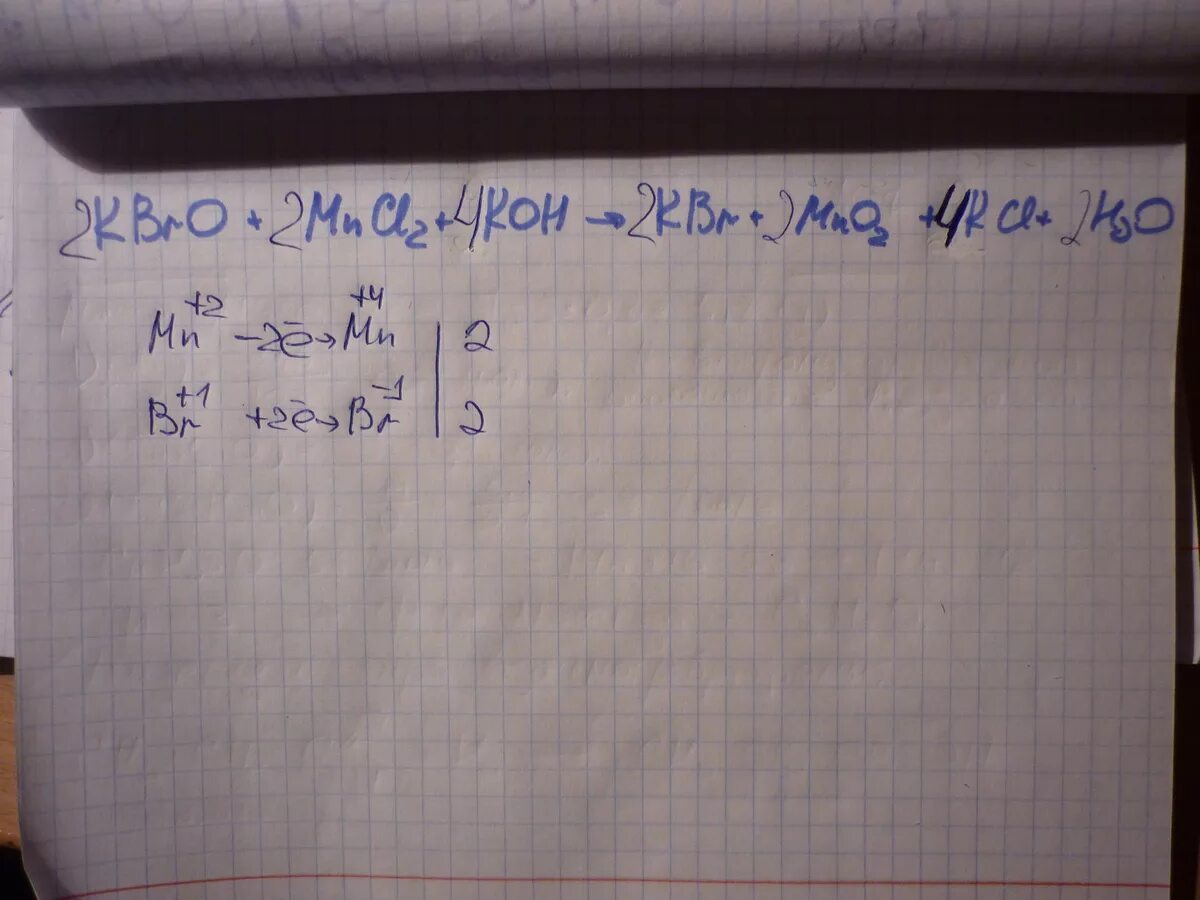 2KBrO + 2MnCl₂ + 4KOH → 2KBr + 2MnO₂ + 4KCl + 2H₂O
Mn⁺² −2ē → Mn⁺⁴ | 2
Br⁺¹ +2ē → Br⁻¹ | 2